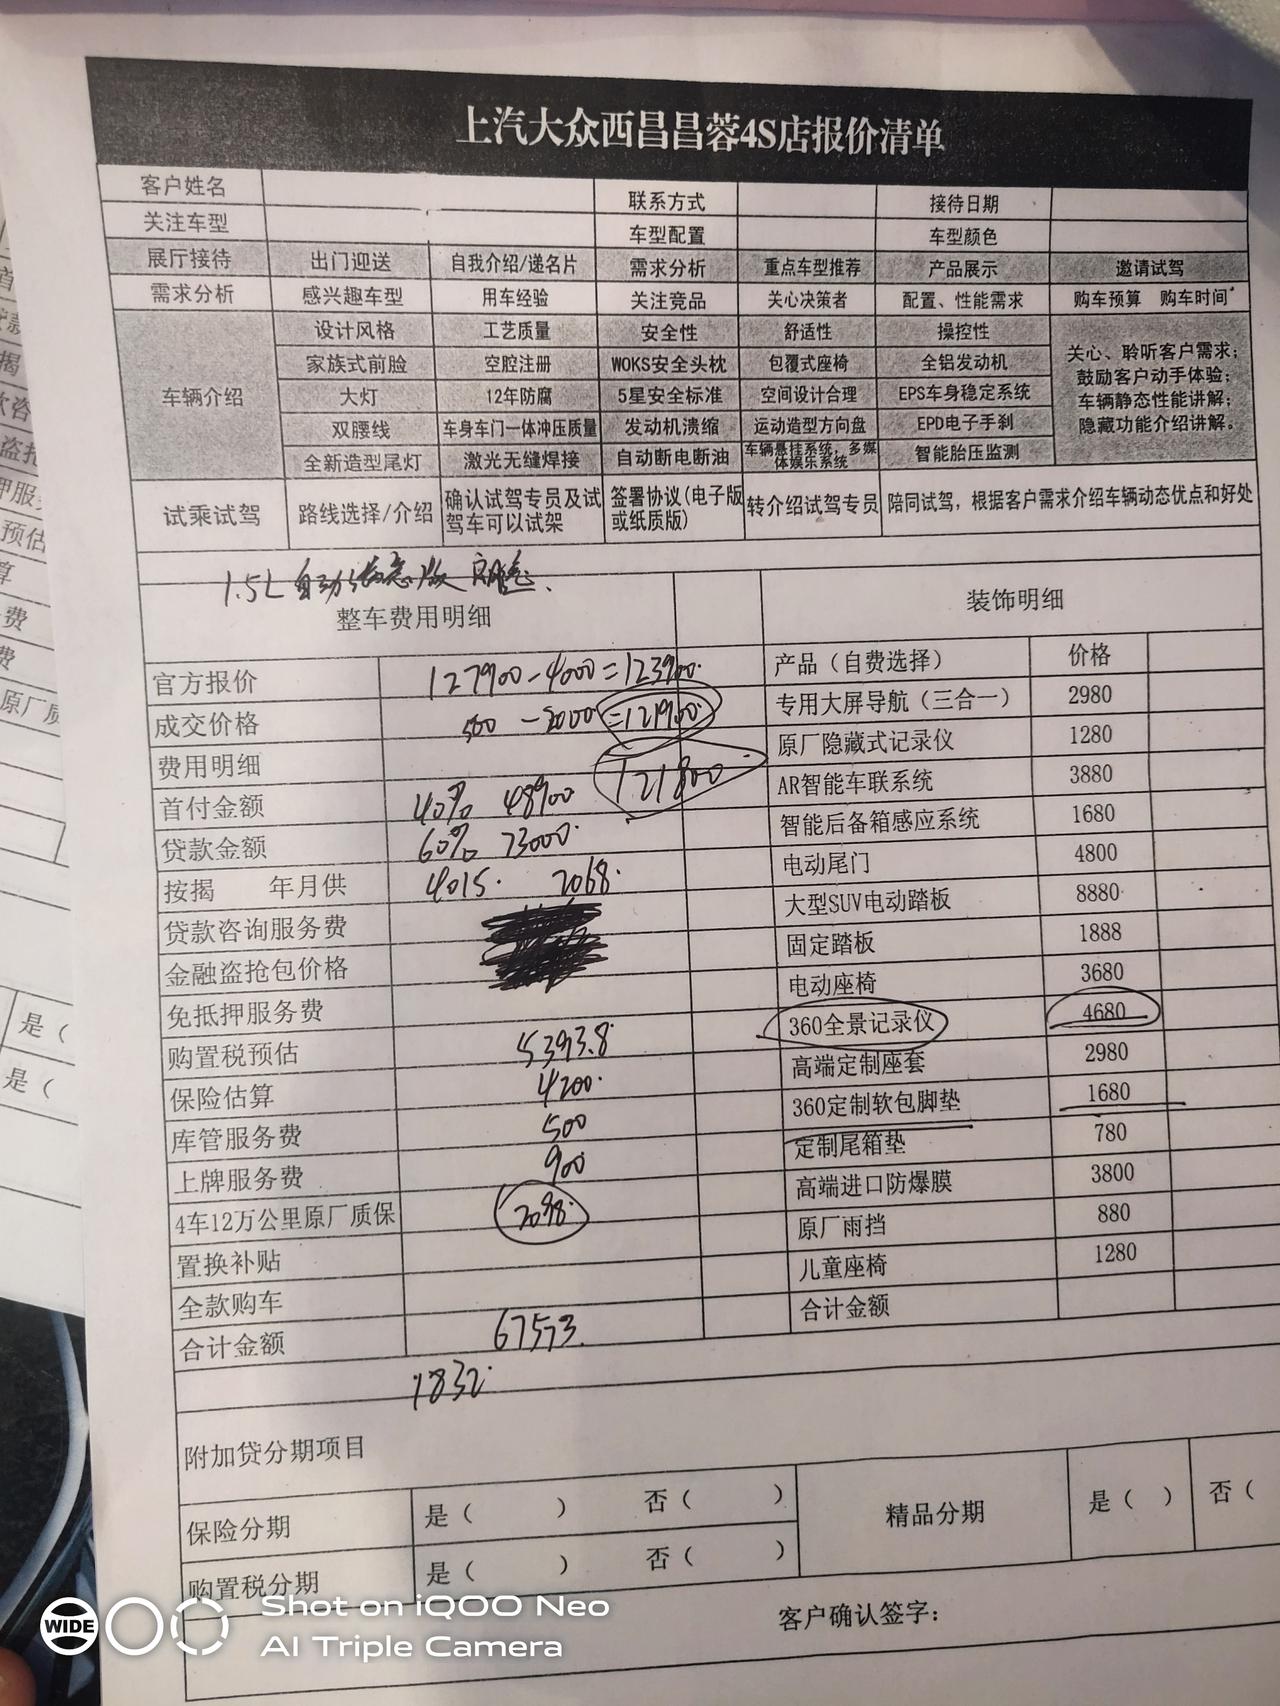 上汽大众西昌昌蓉4S店报价清单
客户姓名 联系方式 接待日期
关注车型 车型配置 车型颜色
展厅接待 出门迎送 自我介绍/递名片 需求分析 重点车型推荐 产品展示 邀请试驾
需求分析 感兴趣车型 用车经验 关注竞品 关心决策者 配置、性能需求 购车预算 购车时间
车辆介绍
设计风格 工艺质量 安全性 舒适性 操控性
家族式前脸 空腔注册 WOKS安全头枕 包覆式座椅 全铝发动机
大灯 12年防腐 5星安全标准 空间设计合理 EPS车身稳定系统
双腰线 车身车门一体冲压质量 发动机溃缩 运动造型方向盘 EPD电子手刹
全新造型尾灯 激光无缝焊接 自动断电断油 车辆悬挂系统，多媒体娱乐系统 智能胎压监测
关心、聆听客户需求；
鼓励客户动手体验；
车辆静态性能讲解；
隐藏功能介绍讲解。
试乘试驾 路线选择/介绍 确认试驾专员及试驾车可以试架 签署协议(电子版或纸质版) 转介绍试驾专员 陪同试驾，根据客户需求介绍车辆动态优点和好处
1.5L 自动
整车费用明细
官方报价 127900-4000=123900
成交价格 500 -2000=121900
费用明细 121800
首付金额 40% 48900
贷款金额 60% 73000
按揭 年月供 4015. 2068.
贷款咨询服务费
金融盗抢包价格
免抵押服务费
购置税预估 5393.8
保险估算 4200.
库管服务费 500
上牌服务费 900
4车12万公里原厂质保 2098.
置换补贴
全款购车
合计金额 67573.
1832.
装饰明细
产品（自费选择） 价格
专用大屏导航（三合一） 2980
原厂隐藏式记录仪 1280
AR智能车联系统 3880
智能后备箱感应系统 1680
电动尾门 4800
大型SUV电动踏板 8880
固定踏板 1888
电动座椅 3680
360全景记录仪 4680
高端定制座套 2980
360定制软包脚垫 1680
定制尾箱垫 780
高端进口防爆膜 3800
原厂雨挡 880
儿童座椅 1280
合计金额
附加贷分期项目
保险分期 是（ ） 否（ ） 精品分期 是（ ） 否（
购置税分期 是（ ） 否（ ）
客户确认签字：
WIDE
Shot on iQOO Neo
AI Triple Camera